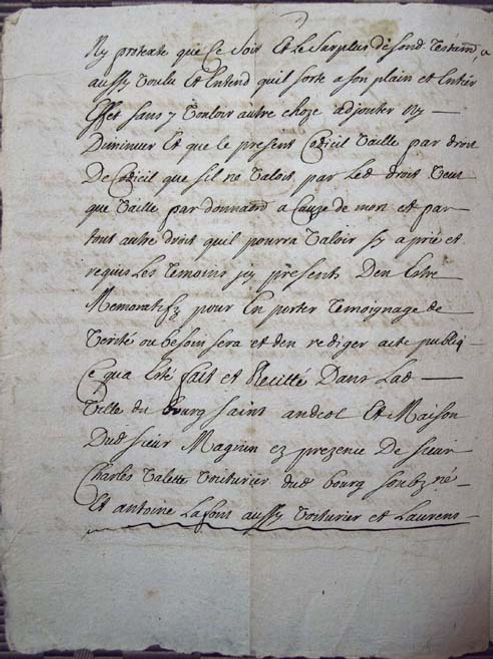 Ny protexte que ce soit Et le surplus de sond. Testam.t a
aussy Voulu Et Entend quil sorte a son plain et Entier
Effet sans y Vouloir autre choze adjouter Ny
Diminuer Et que le present Codicil Vaille par droit
De Codicil que sil ne Valoit par led droit Veut
que Vaille par donnaon a Cauze de mort et par
tout autre droit quil pourra Valoir sy a prié et
requis Les Temoins icy presents Den Estre
Memoratifz pour En porter Temoignage de
Verité ou besoin sera et den rediger acte publiq
Ce qua Esté fait et Recitté Dans Lad
Ville du bourg saint andeol Et Maison
Dud sieur Magnin ez prezence De sieur
Charles Valette Voiturier dud bourg soubz né
Et antoine Lafont aussy Voiturier et Laurens